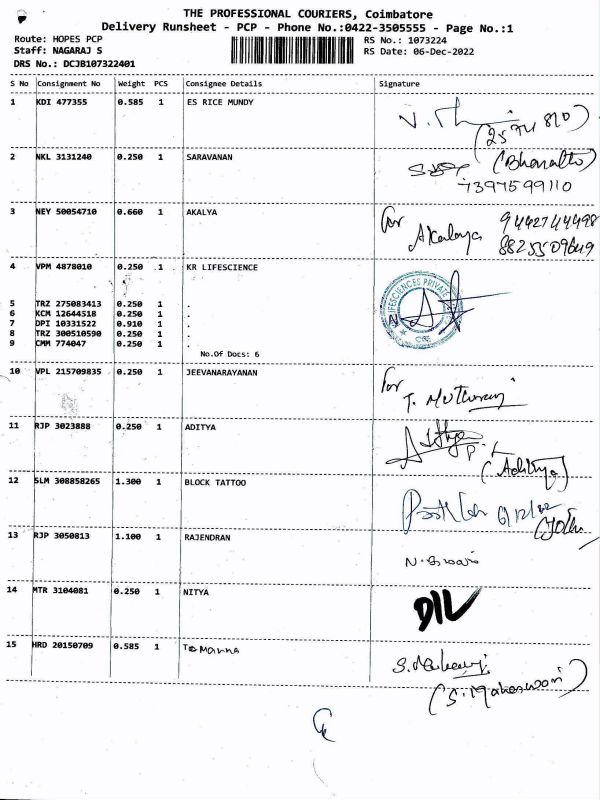 THE PROFESSIONAL COURIERS, Coimbatore
Delivery Runsheet - PCP - Phone No.:0422-3505555 - Page No.:1
Route: HOPES PCP
Staff: NAGARAJ S
DRS No.: DCJB107322401
RS No.: 1073224
RS Date: 06-Dec-2022
S No Consignment No Weight PCS Consignee Details Signature
1 KDI 477355 0.585 1 ES RICE MUNDY
(2574 810)
2 NKL 3131240 0.250 1 SARAVANAN
7397599110
3 NEY 50054710 0.660 1 AKALYA
for Akalaya
9442744498
8825509649
4 VPM 4878010 0.250 1 KR LIFESCIENCE
LIFESCIENCES PRIVATE
CBE
5 TRZ 275083413 0.250 1 .
6 KCM 12644518 0.250 1 .
7 DPI 10331522 0.910 1 .
8 TRZ 300510590 0.250 1 .
9 CMM 774047 0.250 1 .
No.Of Docs: 6
10 VPL 215709835 0.250 1 JEEVANARAYANAN
for
11 RJP 3023888 0.250 1 ADITYA
(Adithya)
12 SLM 308858265 1.300 1 BLOCK TATTOO
6/12/22
13 RJP 3050813 1.100 1 RAJENDRAN
14 MTR 3104081 0.250 1 NITYA
15 HRD 20150709 0.585 1 Tamanna
(S. Maheswari)